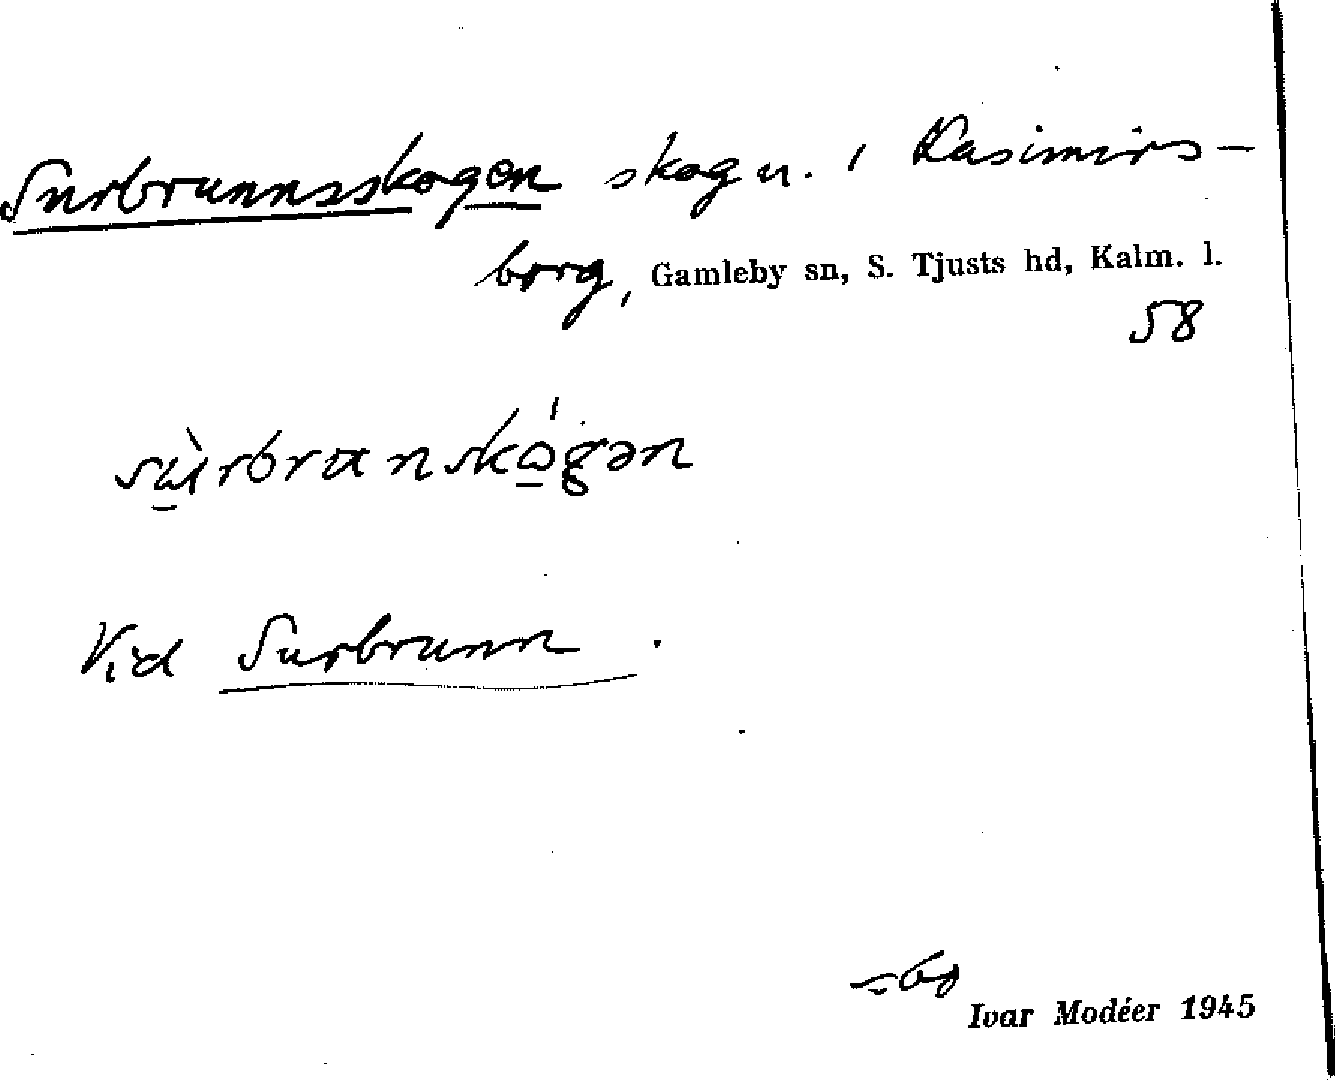 Surbrunnsskogen skog u. i Kasimirs-
borg, Gamleby sn, S. Tjusts hd, Kalm. l.
58
Vid Surbrunn.
Ivar Modéer 1945